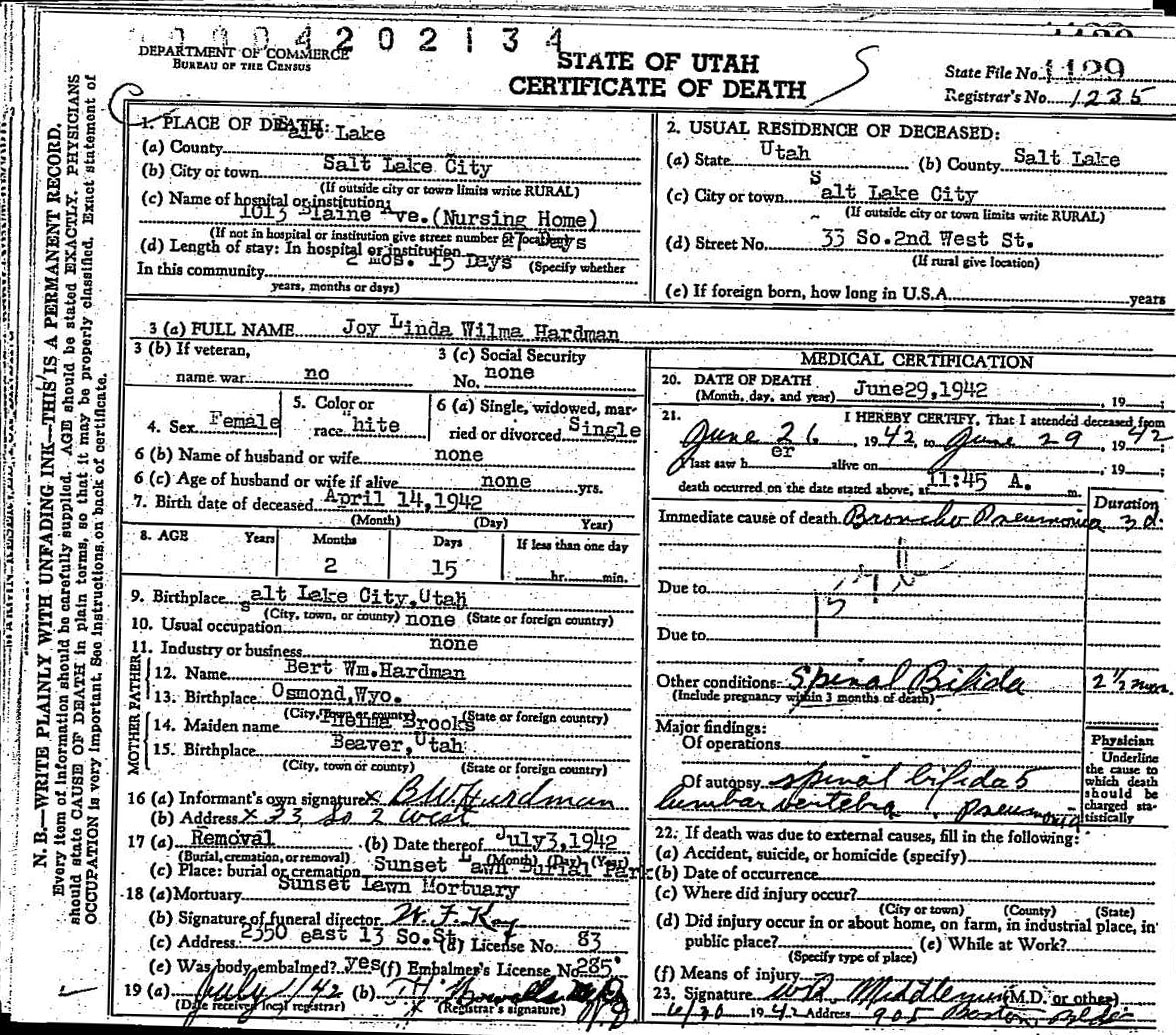 4 2 0 2 1 3 4
DEPARTMENT OF COMMERCE
BUREAU OF THE CENSUS
STATE OF UTAH
CERTIFICATE OF DEATH
S
State File No. 1129
Registrar's No. 1235
N. B.—WRITE PLAINLY WITH UNFADING INK—THIS IS A PERMANENT RECORD.
Every item of information should be carefully supplied. AGE should be stated EXACTLY. PHYSICIANS
should state CAUSE OF DEATH in plain terms, so that it may be properly classified. Exact statement of
OCCUPATION is very important. See instructions on back of certificate.
1. PLACE OF DEATH:
(a) County alt Lake
(b) City or town Salt Lake City
(If outside city or town limits write RURAL)
(c) Name of hospital or institution:
1013 Blaine Ave. (Nursing Home)
(If not in hospital or institution give street number or location)
(d) Length of stay: In hospital or institution Days
In this community 2 mos. 15 Days (Specify whether
years, months or days)
2. USUAL RESIDENCE OF DECEASED:
(a) State Utah (b) County Salt Lake
(c) City or town Salt Lake City
(If outside city or town limits write RURAL)
(d) Street No. 33 So.2nd West St.
(If rural give location)
(e) If foreign born, how long in U.S.A. years
3 (a) FULL NAME Joy Linda Wilma Hardman
3 (b) If veteran,
name war no
3 (c) Social Security
No. none
4. Sex Female
5. Color or
race hite
6 (a) Single, widowed, mar-
ried or divorced Single
6 (b) Name of husband or wife none
6 (c) Age of husband or wife if alive none yrs.
7. Birth date of deceased April 14,1942
(Month) (Day) Year)
8. AGE Years Months Days If less than one day
2 15 hr. min.
9. Birthplace Salt Lake City,Utah
(City, town, or county) (State or foreign country)
10. Usual occupation none
11. Industry or business none
FATHER
12. Name Bert Wm.Hardman
13. Birthplace Osmond,Wyo.
(City, town or county) (State or foreign country)
MOTHER
14. Maiden name Thelma Brooks
15. Birthplace Beaver,Utah
(City, town or county) (State or foreign country)
16 (a) Informant's own signature x B W Hardman
(b) Address x 33 So 2 West
17 (a) Removal (b) Date thereof July3,1942
(Burial, cremation, or removal) (Month) (Day) (Year)
(c) Place: burial or cremation Sunset Lawn Burial Park
18 (a) Mortuary Sunset Lawn Mortuary
(b) Signature of funeral director W. F. Kay
(c) Address 2350 east 13 So.St. (d) License No. 83
(e) Was body embalmed? yes (f) Embalmer's License No. 285
19 (a) July 1/42 (b) T H Howells M D
(Date received local registrar) (Registrar's signature)
MEDICAL CERTIFICATION
20. DATE OF DEATH
(Month, day, and year) June29,1942 , 19 ;
21. I HEREBY CERTIFY, That I attended deceased from
June 26 , 1942 to June 29 , 1942;
I last saw h er alive on , 19 ;
death occurred on the date stated above, at 11:45 A. m.
Duration
Immediate cause of death Broncho Pneumonia 3 d.
Due to
Due to
Other conditions Spinal Bifida 2 1/2 mon.
(Include pregnancy within 3 months of death)
Major findings:
Of operations
Of autopsy spinal bifida 5
lumbar vertebra, Pneumonia
Physician
Underline
the cause to
which death
should be
charged sta-
tistically
22. If death was due to external causes, fill in the following:
(a) Accident, suicide, or homicide (specify)
(b) Date of occurrence
(c) Where did injury occur?
(City or town) (County) (State)
(d) Did injury occur in or about home, on farm, in industrial place, in
public place? (e) While at Work?
(Specify type of place)
(f) Means of injury
23. Signature (M.D. or other)
6/30 1942 Address 905 Boston Bldg